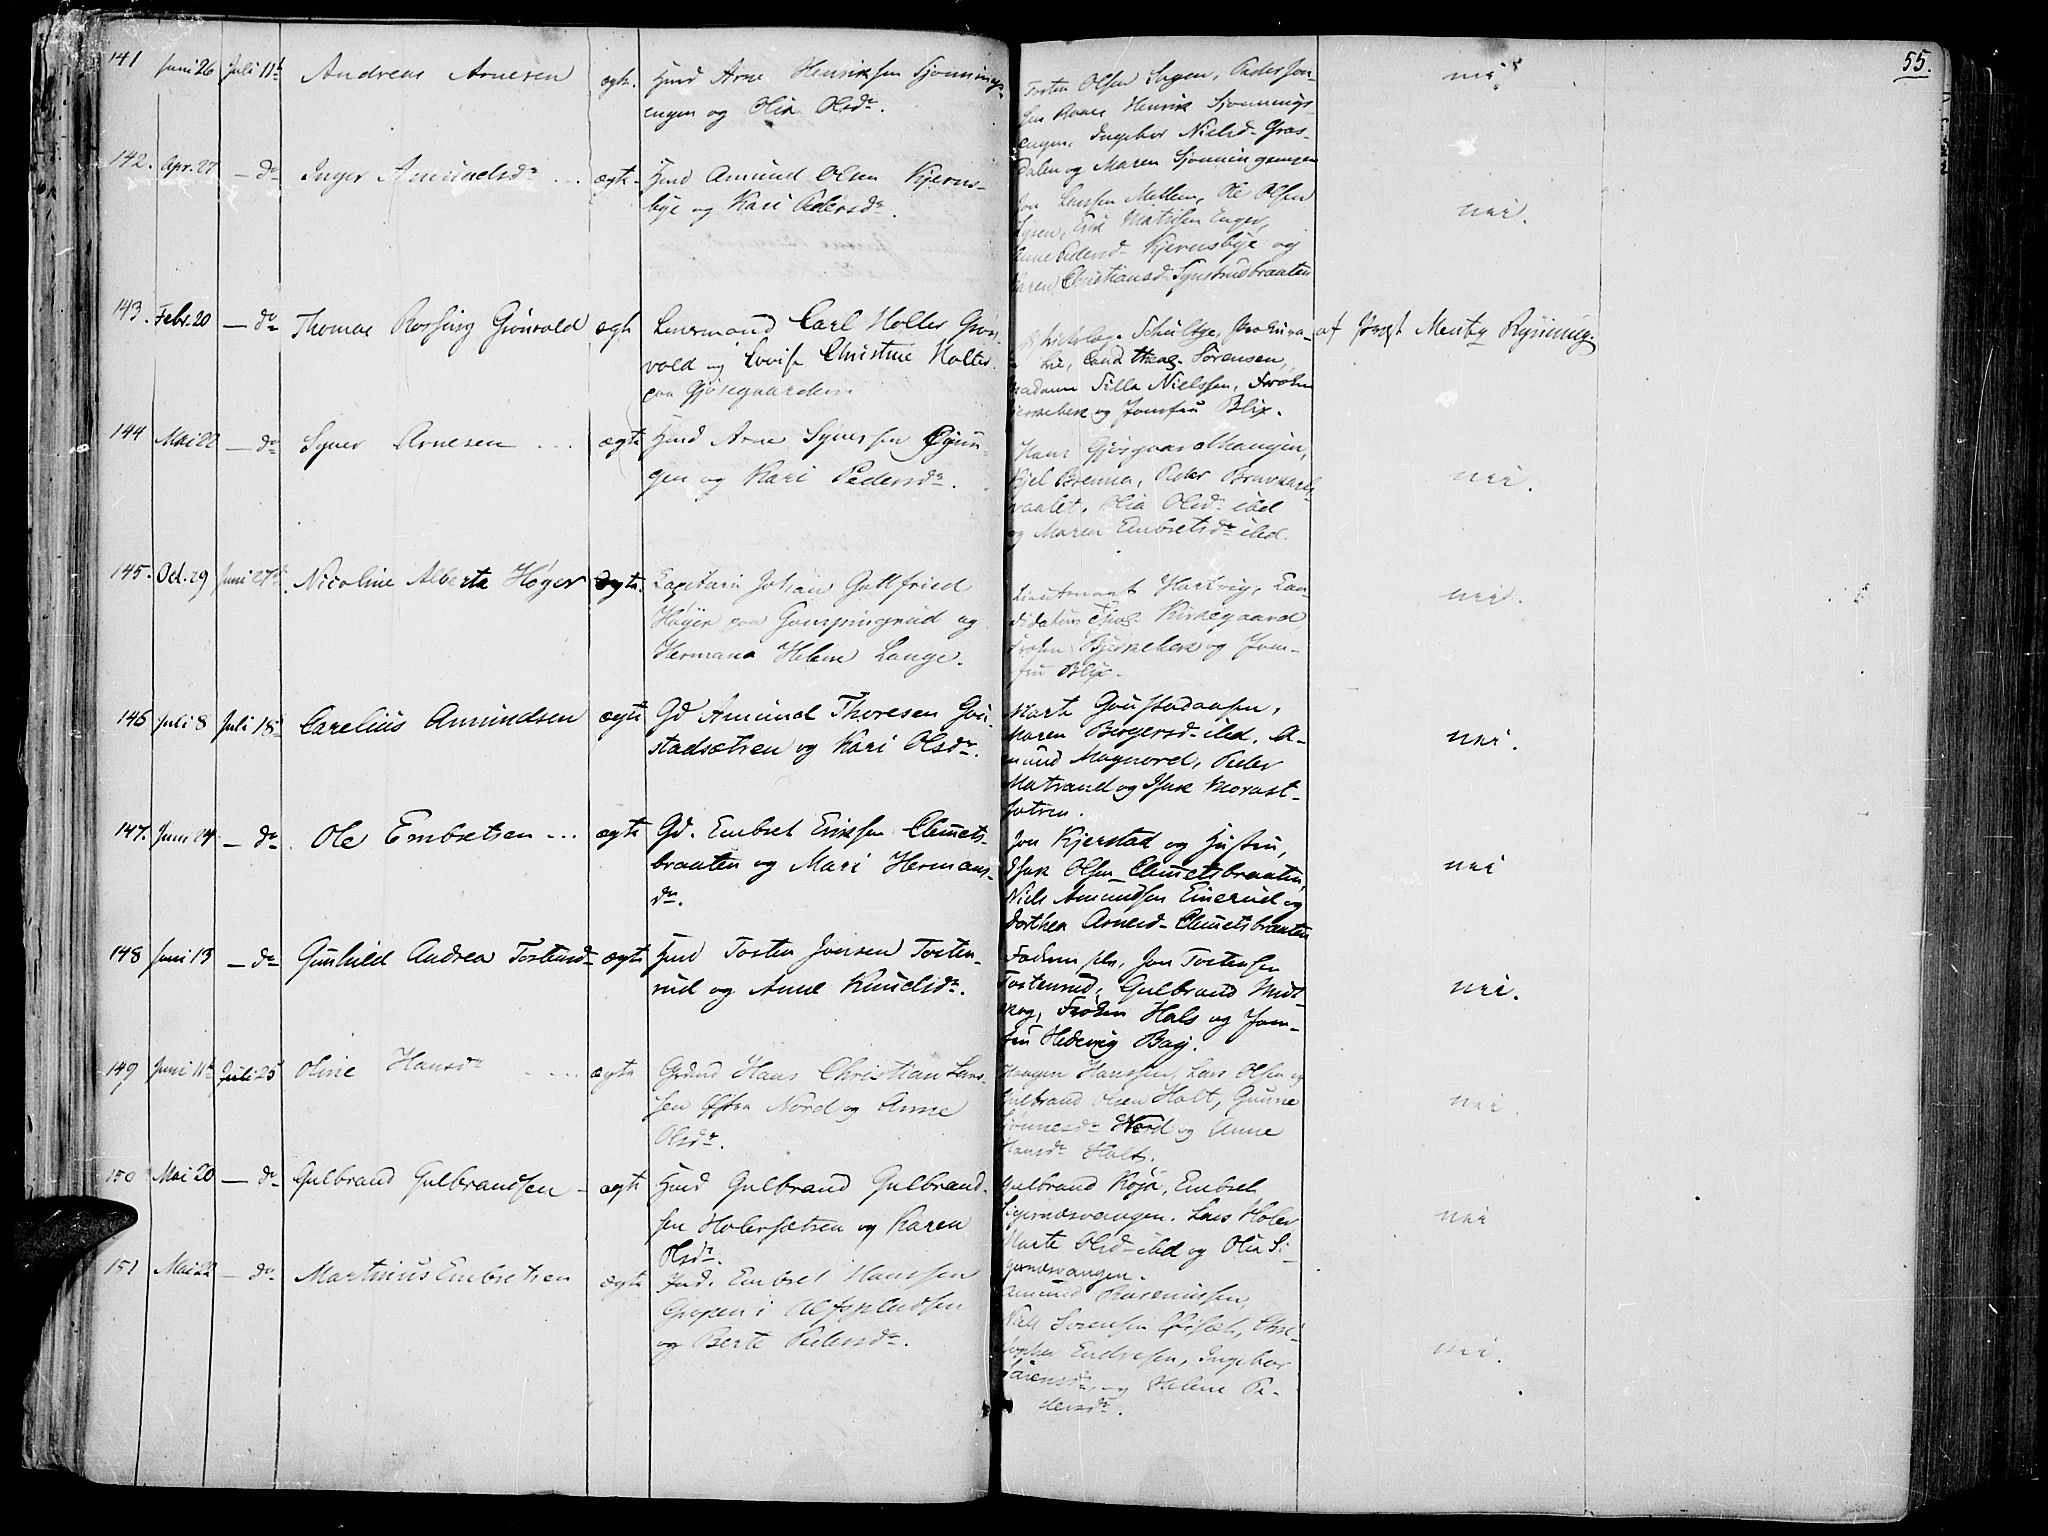 55.
141 Juni 26 Juli 11te Andreas Arnesen ægte. Hmd Arne Henriksen Sjonnings-
engen og Olia Olsdr.
Torsten Olsen Engen, Peder
Henrik Sjonnings-
engen, Ingebor Nielsd. Gras-
dalen og Maren Sjonningsengen
nei
142. Apr. 27 — do Inger Amundsdr ... ægte Hmd Amund Olsen Kjerns-
bye og Kari Pedersdr.
Jon Larssen Mellem, Ole Olsen
Erik Matisen Enger,
Anne Pedersd. Kjernsbye og
Karen Christiansd. Synstnesbraaten
nei.
143. Febr. 20 — do Thomas Rossing Grönvold ægte Lensmand Carl Holter Grön-
vold og Lovise Christine Holter
paa Gjøsegaarden
Schultze, Prokura-
Cand theol. Sørensen,
Madame Silla Nielssen, Frøken
Bjerkebek og Jomfru Blix.
af Præst Mentz Rynning.
144 Mai 22 — do Syver Arnesen ... ægte Hmd Arne Syversen Øyun-
gen og Kari Pedersdr.
Hans Gjøsgaardhaugen,
Kjel Brenna, Peder
Olia Olsd. ibd
og Maren Embretsdr ibd.
nei.
145. Oct. 29 Juni 27de Nicoline Alberta Høyer ægte. Capitain Johan Gottfried
Høyer paa Gompingrud og
Hermana Helene Lange.
Lieutenant Hartvig, Can-
didatus Theol. Kirkegaard,
Frøken Bjerkebek og Jom-
fru Blix.
nei.
146 Juli 8 Juli 18de Carelius Amundsen ægte Gd Amund Thoresen Gou-
stadsætren og Kari Olsdr.
Marte Goustadaasen,
Maren Børgersd. ibd. A-
mund Magnord, Peder
Matrand og Isak Morast-
sætren.
nei.
147. Juni 14 — do Ole Embretsen ... ægte Gd. Embret Eriksen Clemets-
braaten og Mari Hermans-
dr.
Jon Kjerstad og Hustru,
Isak Olsen Clemetsbraaten,
Niels Amundsen Einerud og
Dorthea Arnesd. Clemetsbraaten
nei
148 Juni 13 — do Gunhild Andrea Torstensd. ægte Hmd Torsten Jonsen Torten-
rud og Anne Knudsdr.
Jon Tostensen
Tostenrud, Gulbrand Midt-
skog, Frøken Hals og Jom-
fru Hedevig Bay.
nei.
149 Juni 11te Juli 25de Oline Hansdr ... ægte Grdmd Hans Christian Lars-
sen Nord og Anne
Olsdr.
Haagen Hanssen, Lars Olsen og
Gulbrand Olsen Holt, Gunne
Nord og Anne
Hansdr Holt.
nei.
150 Mai 20 — do Gulbrand Gulbrandsen - ægte Hmd Gulbrand Gulbrand-
sen Holersætren og Karen
Olsdr.
Gulbrand Rója, Embret
Sigernæsvangen. Lars Holer
Marte Olsd. ibd og Olia Si-
gernæsvangen.
nei
151 Mai 22 — do Martinus Embretsen ægte Ind. Embret Hanssen
i
og Berte Pedersdr.
Amund Rasmussen,
Niels Sørensen Chri-
stopher Endresen, Ingebor
Sørensdr. og Helene Pe-
dersdr.
nei.